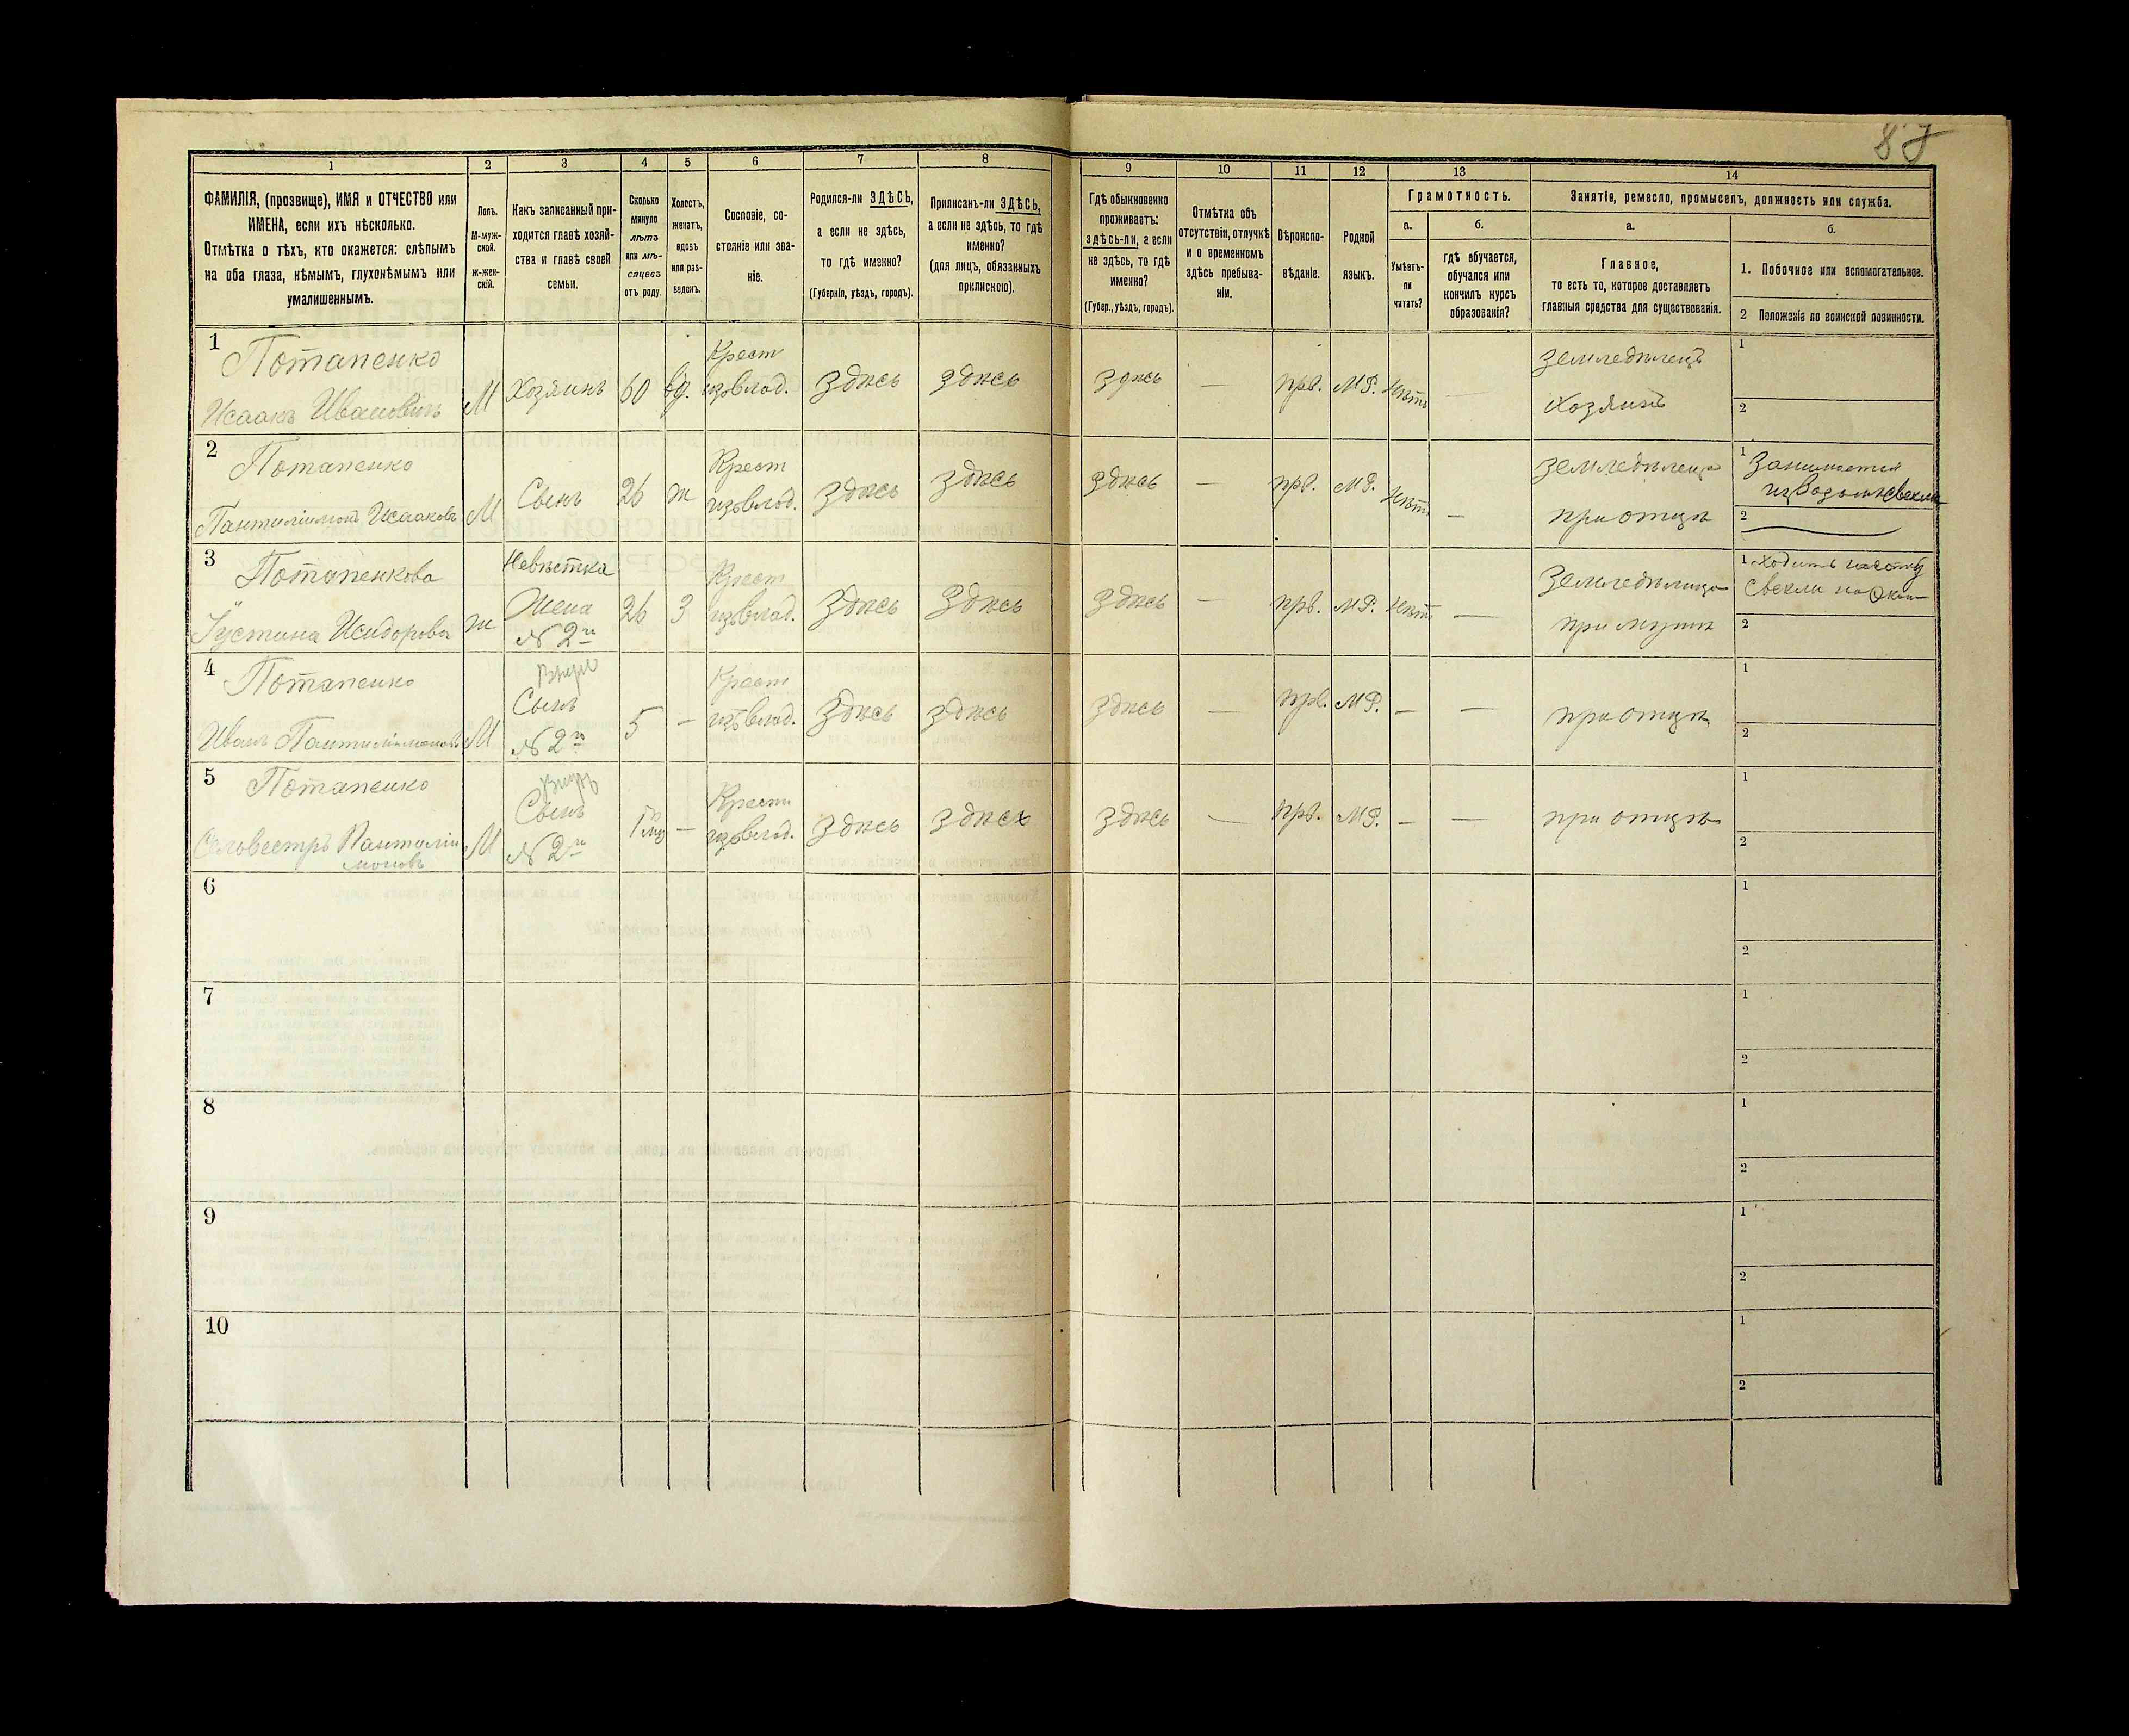 87
1
2
3
4
5
6
7
8
9
10
11
12
13
14
ФАМИЛІЯ, (прозвище), ИМЯ и ОТЧЕСТВО или
ИМЕНА, если ихъ нѣсколько.
Отмѣтка о тѣхъ, кто окажется: слѣпымъ
на оба глаза, нѣмымъ, глухонѣмымъ или
умалишеннымъ.
Полъ.
М-муж-
ской.
ж-жен-
скій.
Какъ записанный при-
ходится главѣ хозяй-
ства и главѣ своей
семьи.
Сколько
минуло
лѣтъ
или мѣ-
сяцевъ
отъ роду.
Холостъ,
женатъ,
вдовъ
или раз-
веденъ.
Сословіе, со-
стояніе или зва-
ніе.
Родился-ли ЗДѢСЬ,
а если не здѣсь,
то гдѣ именно?
(Губернія, уѣздъ, городъ).
Приписанъ-ли ЗДѢСЬ,
а если не здѣсь, то гдѣ
именно?
(для лицъ, обязанныхъ
припискою).
Гдѣ обыкновенно
проживаетъ:
здѣсь-ли, а если
не здѣсь, то гдѣ
именно?
(Губер., уѣздъ, городъ).
Отмѣтка объ
отсутствіи, отлучкѣ
и о временномъ
здѣсь пребыва-
ніи.
Вѣроиспо-
вѣданіе.
Родной
языкъ.
Грамотность.
а.
Умѣетъ-
ли
читать?
б.
гдѣ обучается,
обучался или
кончилъ курсъ
образованія?
Занятія, ремесло, промыселъ, должность или служба.
а.
Главное,
то есть то, которое доставляетъ
главныя средства для существованія.
б.
1. Побочное или вспомогательное.
2 Положеніе по воинской повинности.
1
Потапенко
Исаакъ Ивановичъ
М
Хозяинъ
60
вд.
Крест
изъвлад.
Здѣсь
здѣсь
здѣсь
—
прв.
МР.
Нѣтъ
—
земледѣлецъ
Хозяинъ
1
2
2
Потапенко
Пантилимонъ Исааковъ
М
Сынъ
26
ж
Крест
изъвлад.
Здѣсь
здѣсь
здѣсь
—
прв.
МР.
Нѣтъ
—
земледѣлецъ
при отцѣ
1 Занимается
извозомъ свеклы
2
3
Потапенкова
Іустина Исидорова
ж
Невѣстка
Жена
№ 2й
26
З
Крест
изъвлад.
Здѣсь
Здѣсь
Здѣсь
—
прв.
МР.
Нѣтъ
—
Земледѣлица
при мужѣ
1. Ходитъ
свекли
2
4
Потапенко
Иванъ Пантилимоновъ
М
Внукъ
Сынъ
№ 2й
5
—
Крест
изъвлад.
Здѣсь
здѣсь
здѣсь
—
прв.
МР.
—
—
при отцѣ
1
2
5
Потапенко
Селовестръ Пантилии
моновъ
М
Внукъ
Сынъ
№ 2й
1 мц
—
Крест
изъвлад.
здѣсь
здѣсь
здѣсь
—
прв.
МР.
—
—
при отцѣ
1
2
6
1
2
7
1
2
8
1
2
9
1
2
10
1
2